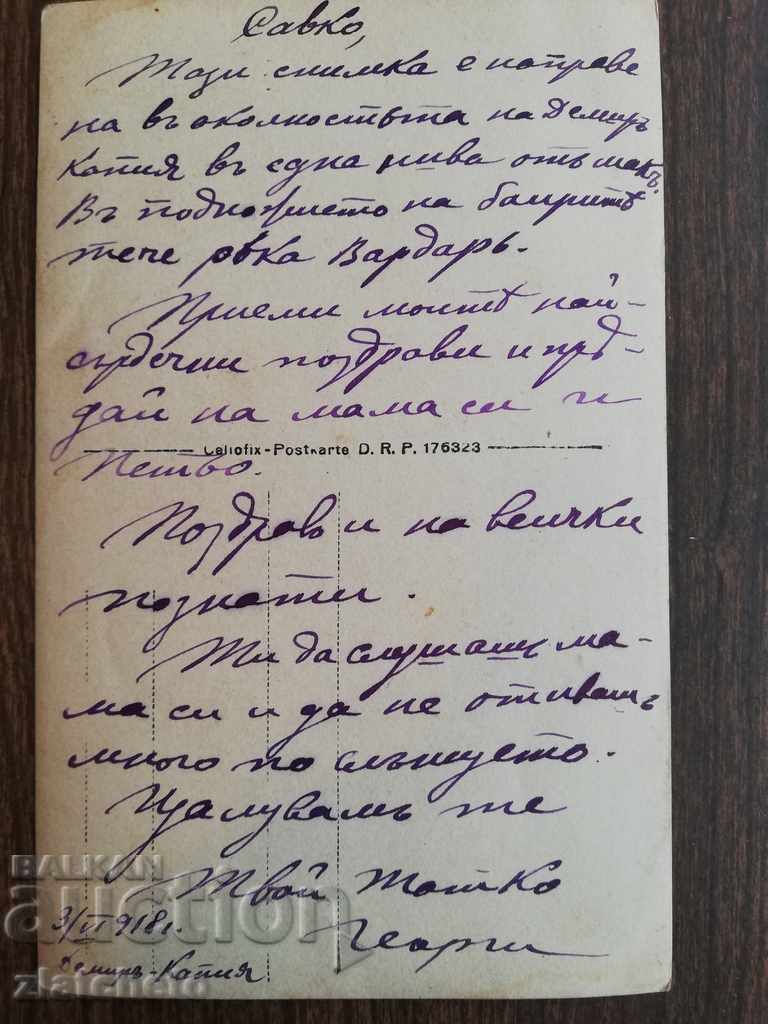 Савко,
Тази снимка е направе
на въ околностьта на Демиръ
Капия въ една нива отъ макъ.
Въ подножието на баиритѣ
тече рѣка Вардаръ.
Приеми моитѣ най-
сърдечни поздрави и прѣ-
дай на мама си и
Callofix-Postkarte D. R. P. 176323
Поздравъ и на всички
познати.
Ти да слушашъ ма-
ма си и да не отивашъ
много по слънцето.
Цалувамъ те
Твой татко
Георги
3/VI 918 г.
Демиръ-Капия
BALKAN
auction
zlatcheto